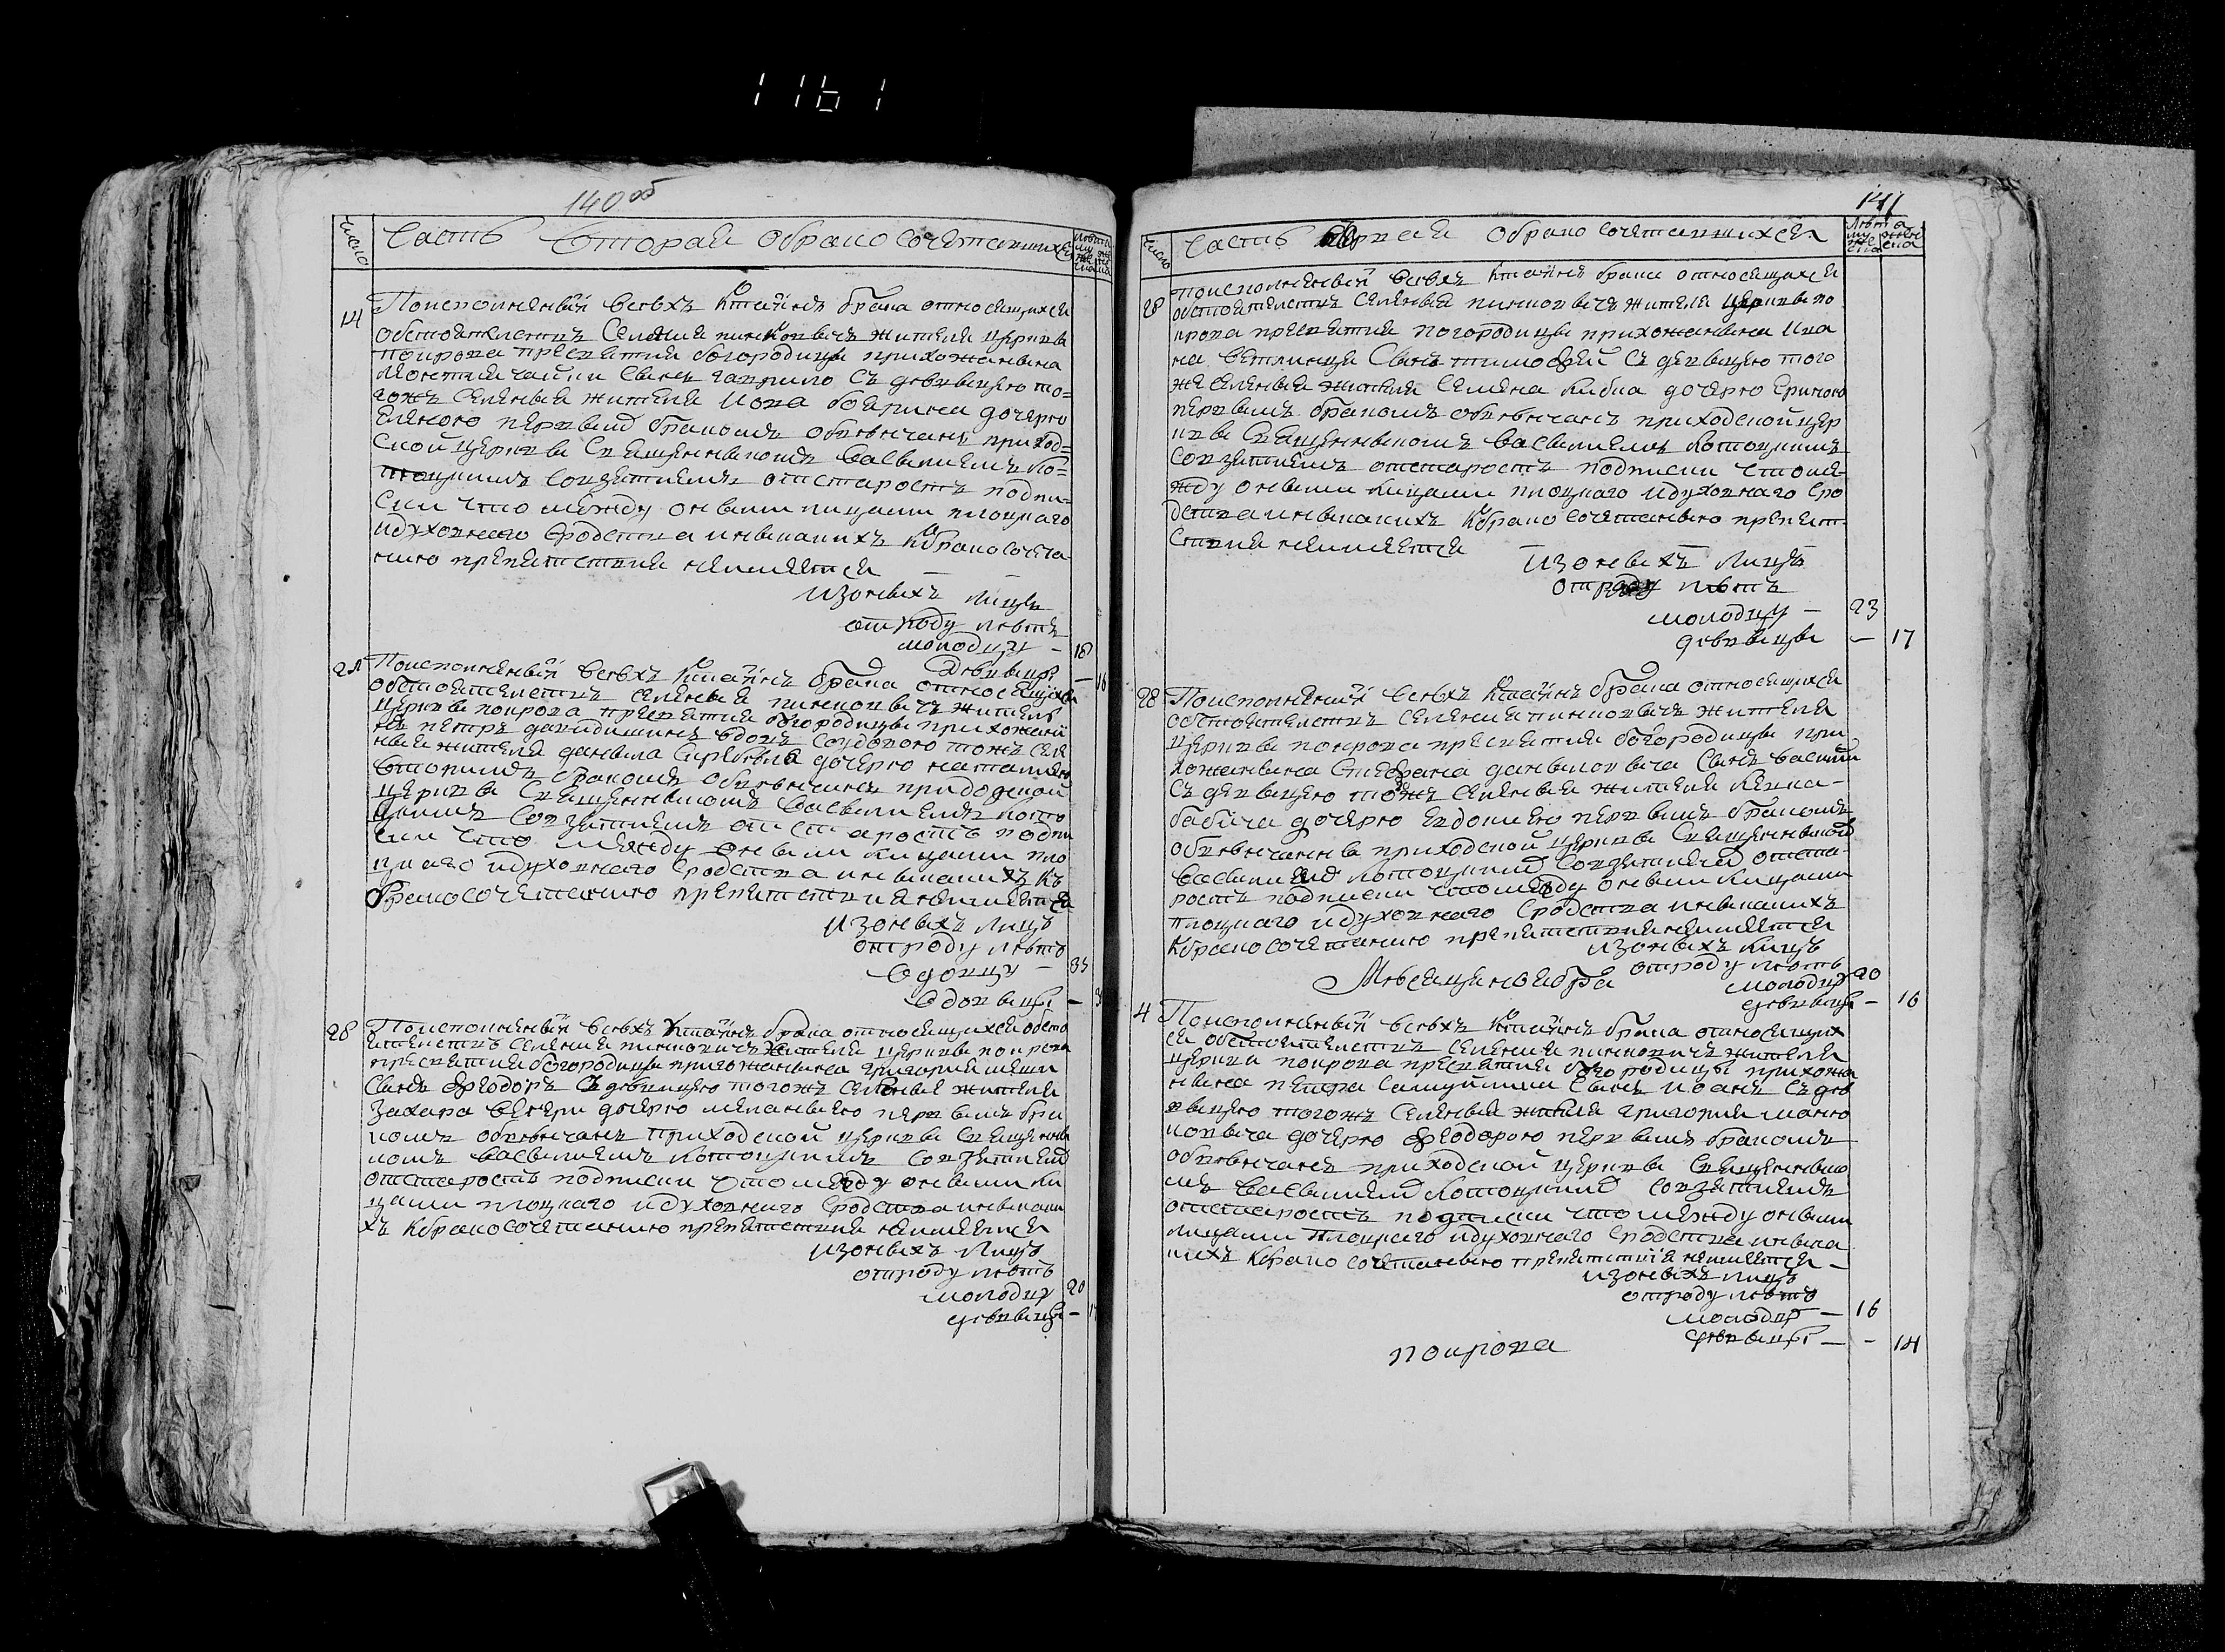 1161
140 об
Число
Часть Вторая обрако сочетавшихся
Лѣта
му же
жеска
14
По исполненый всѣхъ ктайнѣ брака относящихся
обстоятелствъ селения пинковичъ жителя церкви
покрова пресвятия богородици прихожанына
сынъ гаврило съ дѣвыцею то=
гожъ селеныя жителя дочерю
Еленою первымъ бракомъ обвѣнчанъ приход=
ской церкви священныкомъ васылиемъ Ко=
тоцкимъ совзятиемъ отстаростъ подпи=
ски что между оными лицами плоцкаго
идуховнаго сродства иныкакихъ кбракосочета
нию препятствия неимѣется
изоныхъ лицъ
отроду лѣтъ
молодцу – 18
дѣвыцѣ – 16
По исполненый всѣхъ ктайнѣ брака относящихся
обстоятелствъ селеныя пинковичъ житель
церкви покрова пресвятия богородици прихожани
нъ петръ вдовецъ совдовою тожъ селе
ныя жителя даныла дочерю наталиею
вторимъ бракомъ обвѣнчанъ приходской
церкви священныкомъ васылиемъ кото
цкимъ совзятиемъ отстаростъ подпи
ски что между оными лицами пло
цкаго идуховнаго сродства иныкакихъ къ
бракосочетанию препятствия неимѣется
изоныхъ лицъ
отроду лѣтъ
вдовцу – 35
вдовыцѣ –
28
По исполненый всѣхъ ктайнѣ брака относящихся обсто
ятелствъ селения пинковичъ жителя церкви покрова
пресвятия богородици прихожанына григория
сынъ феодоръ съ дѣвицею тогожъ селеныя жителя
захара дочерю меланыею первымъ бра
комъ обвѣнчанъ приходской церкви священны
комъ васылиемъ котоцкимъ совзятиемъ
отстаростъ подписки что между оными ли
цами плоцкаго идуховнаго сродства иныкаки
хъ кбракосочетанию препятствия неимѣется
изоныхъ лицъ
отроду лѣтъ
молодцу 20
дѣвыцѣ –
141
Число
Часть обрако сочетавшихся
Лѣта
му же
жеска
28
По исполненый всѣхъ ктайнѣ брака относящихся
обстоятелствъ селеныя пинковичъ жителя церкви по
крова пресвятия погородицы прихожанына ива
на сынъ тимофей съ девыцею того
же селеныя жителя семена дочерю Ериною
первымъ бракомъ обвѣнчанъ приходской цер
кви священныкомъ васылиемъ котоцкимъ
совзятиемъ отстаростъ подписки что ме
жду оными лицами плоцкаго идуховнаго сро
дства иныкакихъ кбракосочетаныю препят
ствия неимѣется
изоныхъ лицъ
отроду лѣтъ
молодцу – 23
дѣвыцы – 17
28
По исполнений всѣхъ ктайнѣ брака относящихся
обстоятелствъ селения пинковичъ жителя
церкви покрова пресвятия богородици при
хожанына Стефана даныловыча сынъ василий
съ девыцею тожъ селеныя жителя
бабича дочерю Евдокиею первымъ бракомъ
обвѣнчанны приходской церкви священныкомъ
васылиемъ котоцкимъ совзятиемъ отста
ростъ подписки что между оными лицами
плоцкаго идуховнаго сродства иныкакихъ
кбракосочетанию препятствия неимѣется
изоныхъ лицъ
отроду лѣтъ
молодцу 20
дѣвыцѣ – 16
Мѣсяцъ ноября
4
По исполненый всѣхъ ктайнѣ брака относящих
ся обстоятелствъ селения пинковичъ жителя
церква покрова пресвятия богородицы прихожа
нына петра сынъ иоанъ съ дѣ
выцею тогожъ селеныя жителя григория
дочерю феодорою первымъ бракомъ
обвѣнчанъ приходской церкви священныко
мъ васылиемъ котоцкимъ совзятиемъ
отстаростъ подписки что между оными
лицами плоцкаго идуховнаго сродства иныка
кихъ кбракосочетаныю препятствия неимѣется –
изоныхъ лицъ
отроду лѣтъ
молодцу – 16
дѣвыцѣ – – 14
покрова